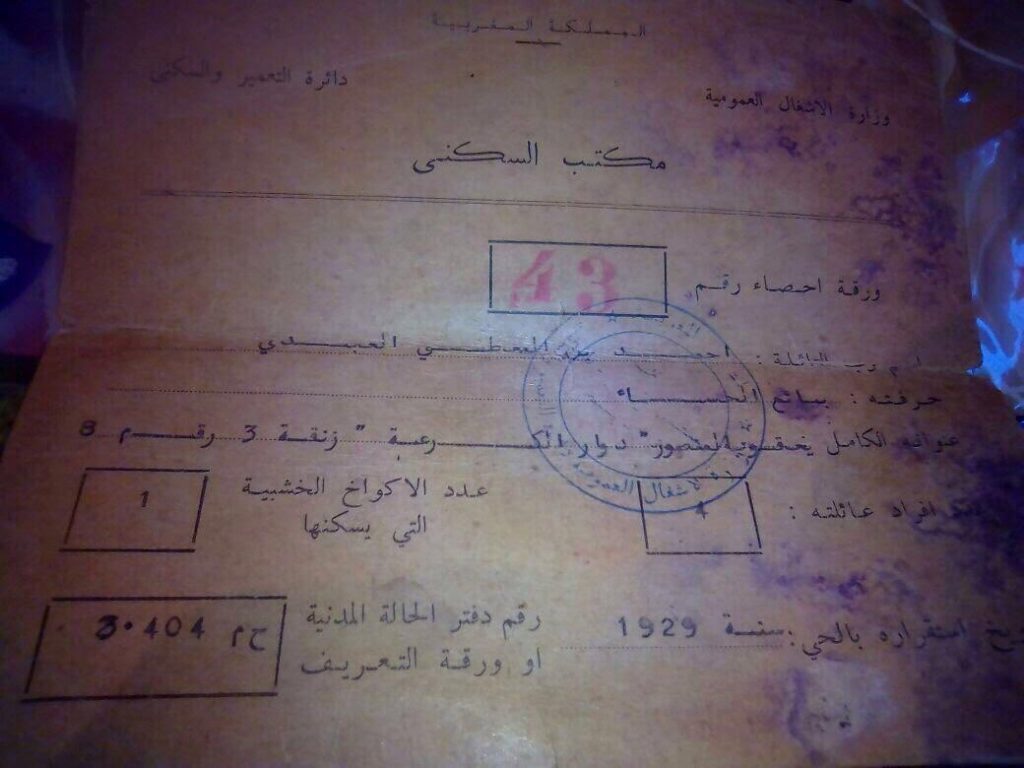 المملكة المغربية
وزارة الاشغال العمومية
دائرة التعمير والسكنى
مكتب السكنى
ورقة احصاء رقم 43
رب العائلة : احمد بن المعطي العبدي
حرفته : بائع الحساء
عنوانه الكامل يعقوب المنصور " دوار الكرعة " زنقة 3 رقم 8
افراد عائلته : 4
عدد الاكواخ الخشبية
التي يسكنها 1
استقراره بالحي : سنة 1929
رقم دفتر الحالة المدنية
او ورقة التعريف ح م 3.404
الاشغال العمومية